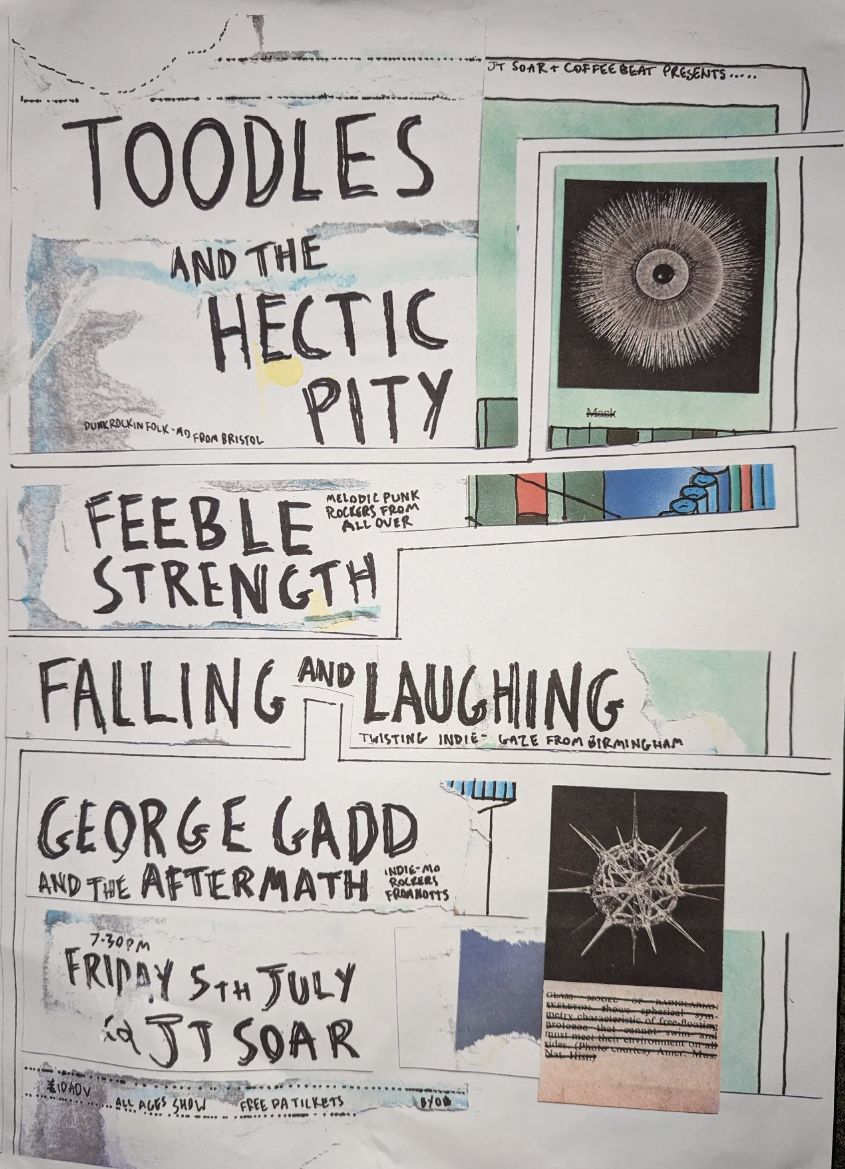 JT SOAR + COFFEEBEAT PRESENTS.....
TOODLES
AND THE
HECTIC
PITY
PUNKROCKIN FOLK-MO FROM BRISTOL
Mask
FEEBLE
STRENGTH
MELODIC PUNK
ROCKERS FROM
ALL OVER
FALLING AND LAUGHING
TWISTING INDIE-GAZE FROM BIRMINGHAM
GEORGE GADD
AND THE AFTERMATH
INDIE-MO
ROCKERS
FROM NOTTS
7.30PM
FRIDAY 5TH JULY
@ JT SOAR
GLASS MODEL OF RADIOLARIAN
SKELETON shows spherical sym-
metry characteristic of free-floating
protozoa that cannot swim and
must meet their environment on all
sides. (Photo courtesy Amer. Mus.
Nat. Hist.)
£10 ADV ALL AGES SHOW FREE DA TICKETS BYOB